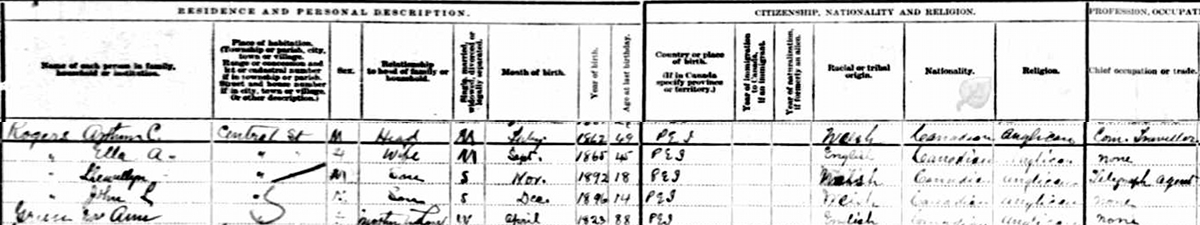 RESIDENCE AND PERSONAL DESCRIPTION. CITIZENSHIP, NATIONALITY AND RELIGION. PROFESSION, OCCUPAT
Name of each person in family, household or institution.
Place of habitation. (Township or parish, city, town or village. Range or concession and lot or cadastral number if in township or parish. Street and house number if in city, town or village. Or other description.)
Sex.
Relationship to head of family or household.
Single, married, widowed, divorced or legally separated.
Month of birth.
Year of birth.
Age at last birthday.
Country or place of birth. (If in Canada specify province or territory.)
Year of immigration to Canada, if an immigrant.
Year of naturalization, if formerly an alien.
Racial or tribal origin.
Nationality.
Religion.
Chief occupation or trade.
Rogers Arthur C. Central St M Head M 1862 49 PEI Welsh Canadian Anglican Com. Traveller
" Ella A. " " Wife M Sept. 1865 45 PEI English Canadian Anglican none
" Llewellyn " M Son S Nov. 1892 18 PEI Welsh Canadian Anglican Telegraph Agent
" John " Son S Dec 1896 14 PEI Welsh Canadian Anglican none
Green Ann W April 1823 88 PEI English Canadian Anglican none